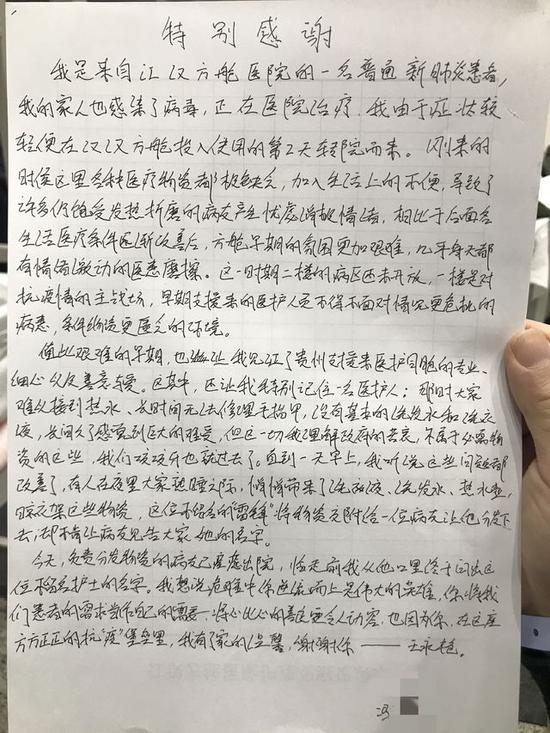 特别感谢
我是来自江汉方舱医院的一名普通新肺炎患者,
我的家人也感染了病毒,正在医院治疗。我由于症状较
轻便在江汉方舱投入使用的第2天转院而来。刚来的
时侯这里各种医疗物资都极缺乏,加入生活上的不便,导致了
许多仍饱受发热折磨的病友产生忧虑消极情绪,相比于后面各
生活医疗条件逐渐改善后,方舱早期的氛围更加艰难,几乎每天都
有情绪激动的医患磨擦。这一时期二楼的病区还未开放,一楼是对
抗疫情的主战场,早期支援来的医护人员不得不面对情况更危机的
病患,条件物资更匮乏的环境。
但此艰难的早期,也能让我见证了贵州支援来医护同胞的专业、
细心以及善意与爱。这其中,还让我特别记住一名医护人;那时大家
难以接到热水、长时间无法修理手指甲,没有基本的洗发水和洗衣
液,长间久了感觉到巨大的难受,但这一切我理解政府的苦衷,不属于必需物
资的这些,我们咬咬牙也就过去了。直到一天早上,我听说这些问题都
改善了,有人在夜里大家熟睡之际,悄悄带来了洗衣液、洗发水、热水壶,
晾衣架这些物资,这位不留名的"雷锋"将物资交附给一位病友让他分发下
去,却不肯让病友告大家他的名字。
今天,负责分发物资的病友已痊愈出院,临走前我从他口里终于问出这
位不留名护士的名字。我想说危难中你应征而上是伟大的英雄,你将我
们患者的需求当作自己的需要,将心比心的善良更令人动容,也因为你,在这座
方方正正的抗"疫"堡垒里,我有了家的温馨,谢谢你——王永艳。
冯